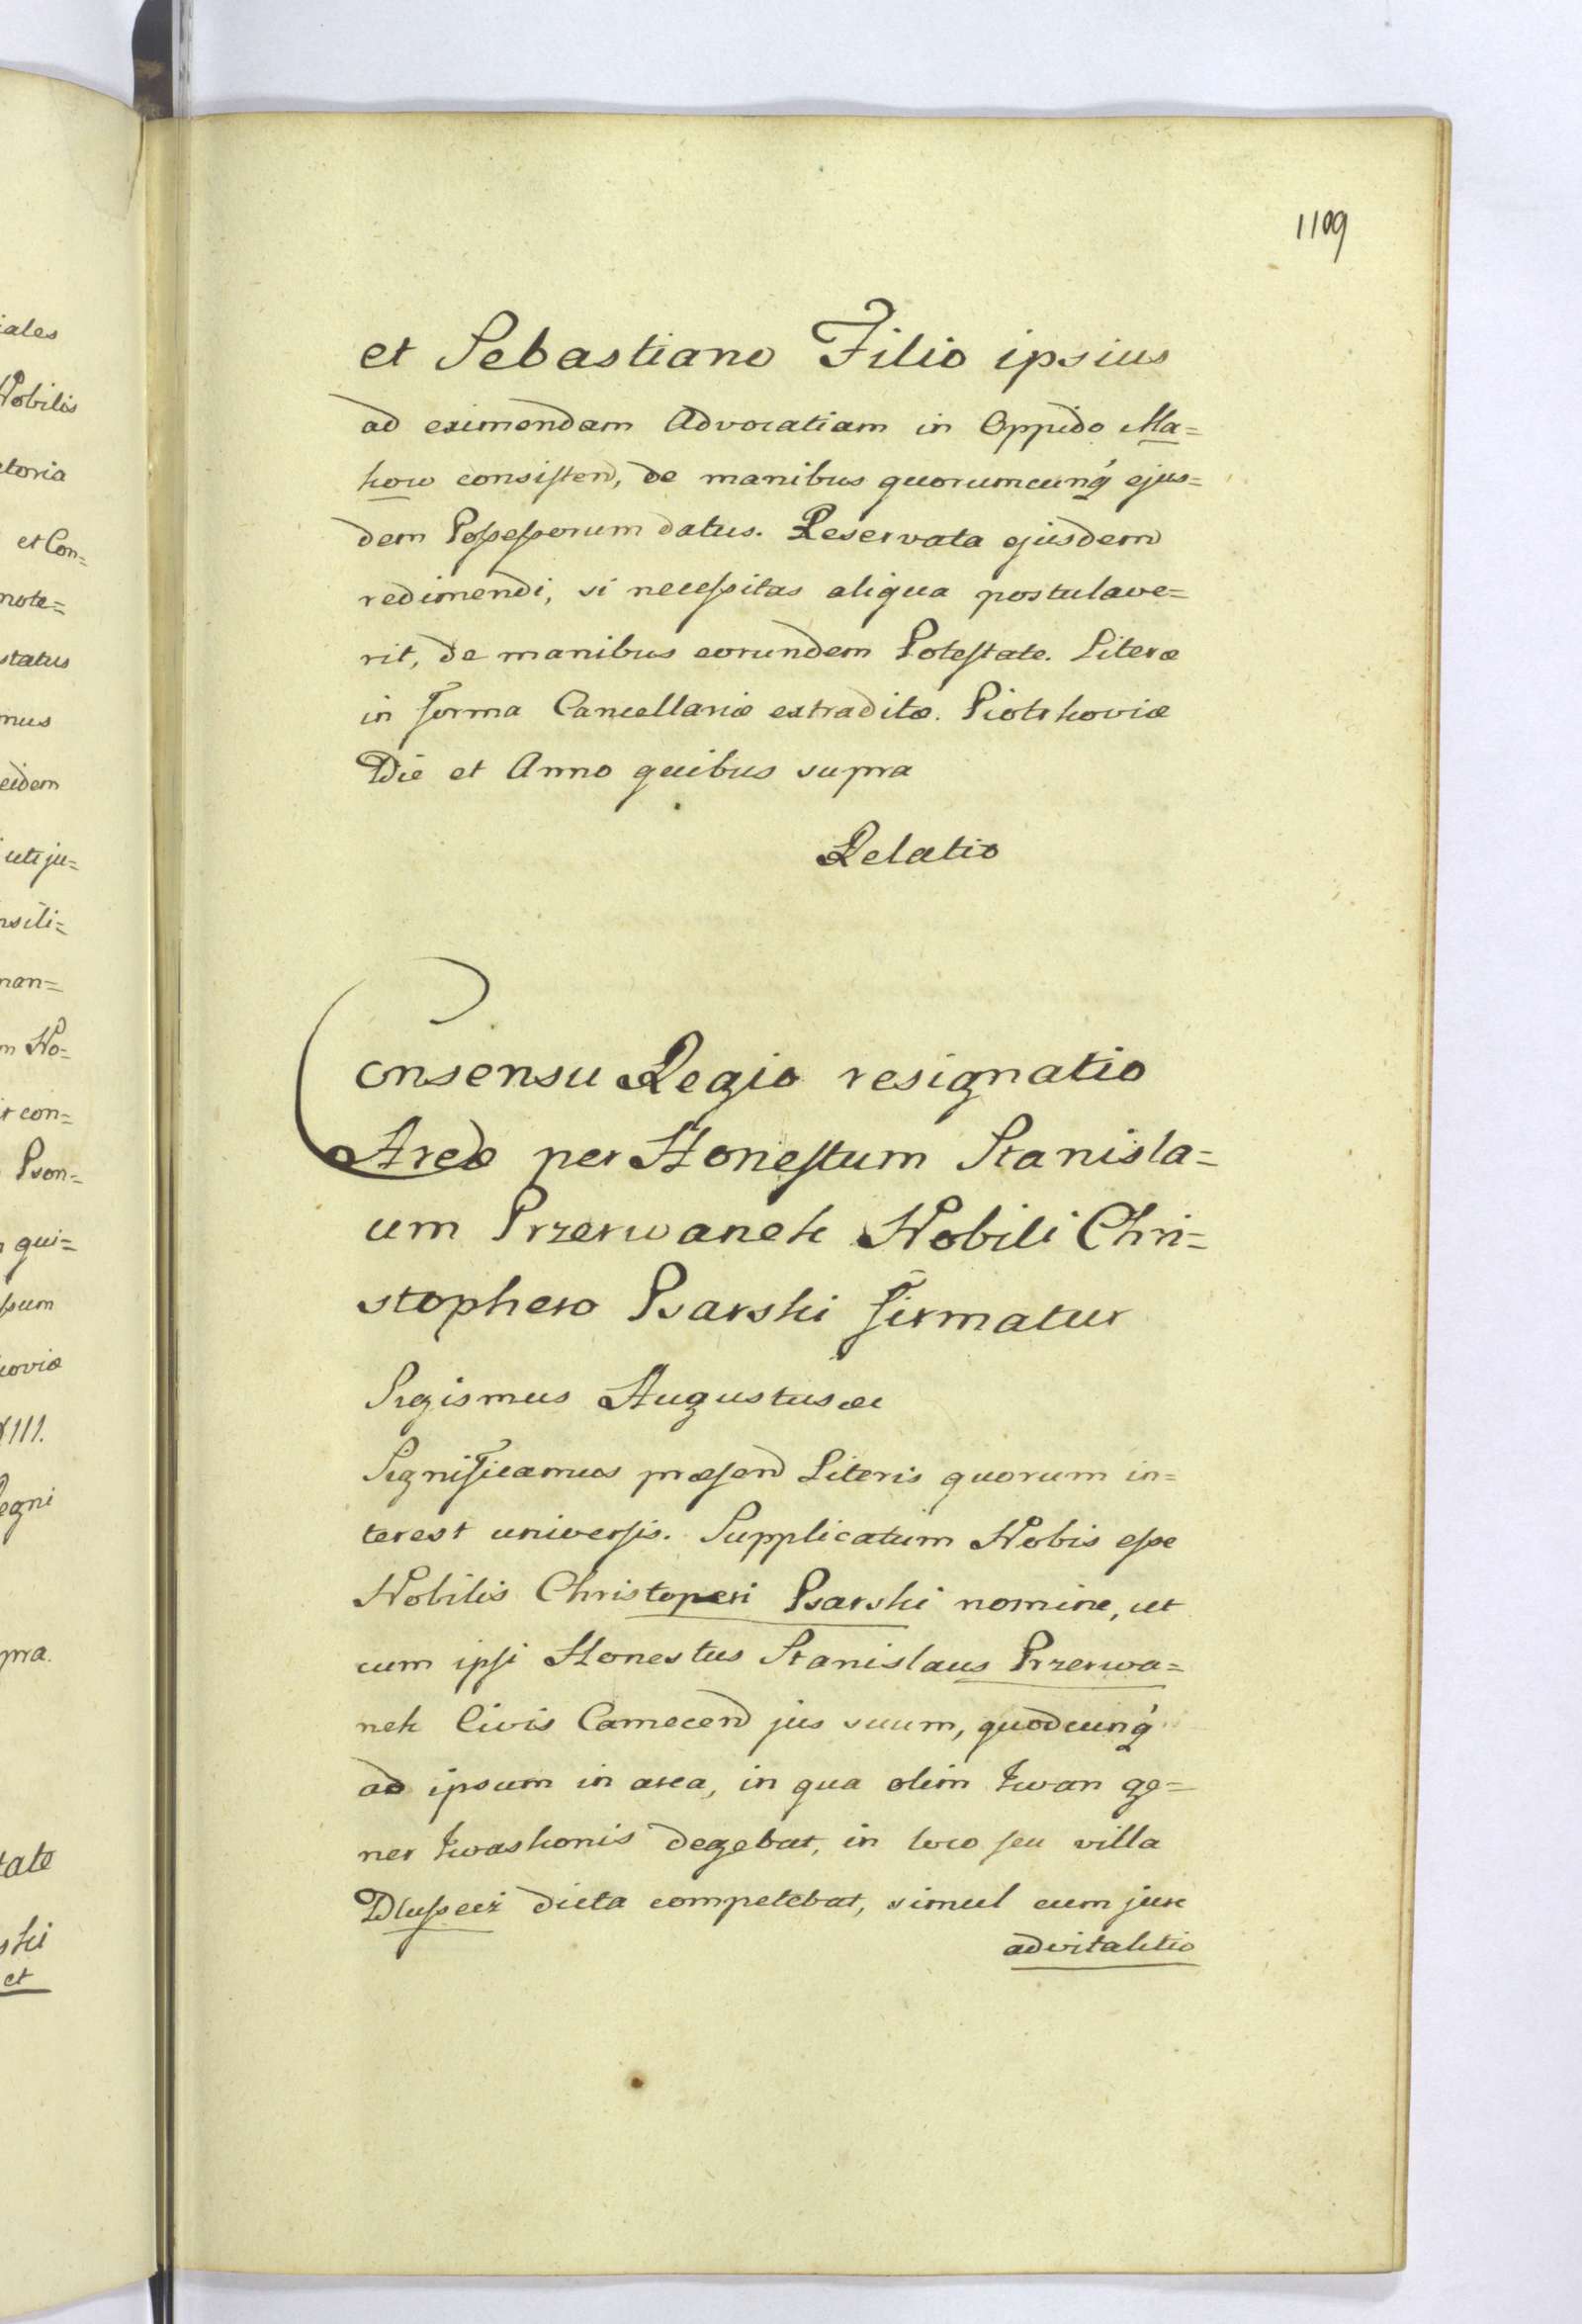 1109
et Sebastiano Filio ipsius
ad eximendam Advocatiam in Oppido Ma=
kow consisten, de manibus quorumcunq́ ejus=
dem Possessorum datus. Reservata ejusdem
redimendi, si necessitas aliqua postulave=
rit, de manibus eorundem Potestate. Literæ
in forma Cancellariæ extraditæ. Piotrkoviæ
Die et Anno quibus supra
Relatio
Consensu Regio resignatio
Areæ per Honestum Stanisla=
um Przerwanek Nobili Chri=
stophero Psarski firmatur
Sigismus Augustus &c
Significamus præsen Literis quorum in=
terest universis. Supplicatum Nobis esse
Nobilis Christoperi Psarski nomine, ut
cum ipsi Honestus Stanislaus Przerwa=
nek Civis Camecen jus suum, quodcunq́
ad ipsum in area, in qua olim Iwan ge=
ner Iwaskonis degebat, in loco seu villa
dicta competebat, simul cum jure
advitalitio
iales
Nobilis
toria
et Con=
mote=
status
mus
eidem
uti ju=
nsili=
man=
m No=
it con=
Pson=
qui=
ssum
koviæ
XIII.
Regni
pra.
tate
ski
et